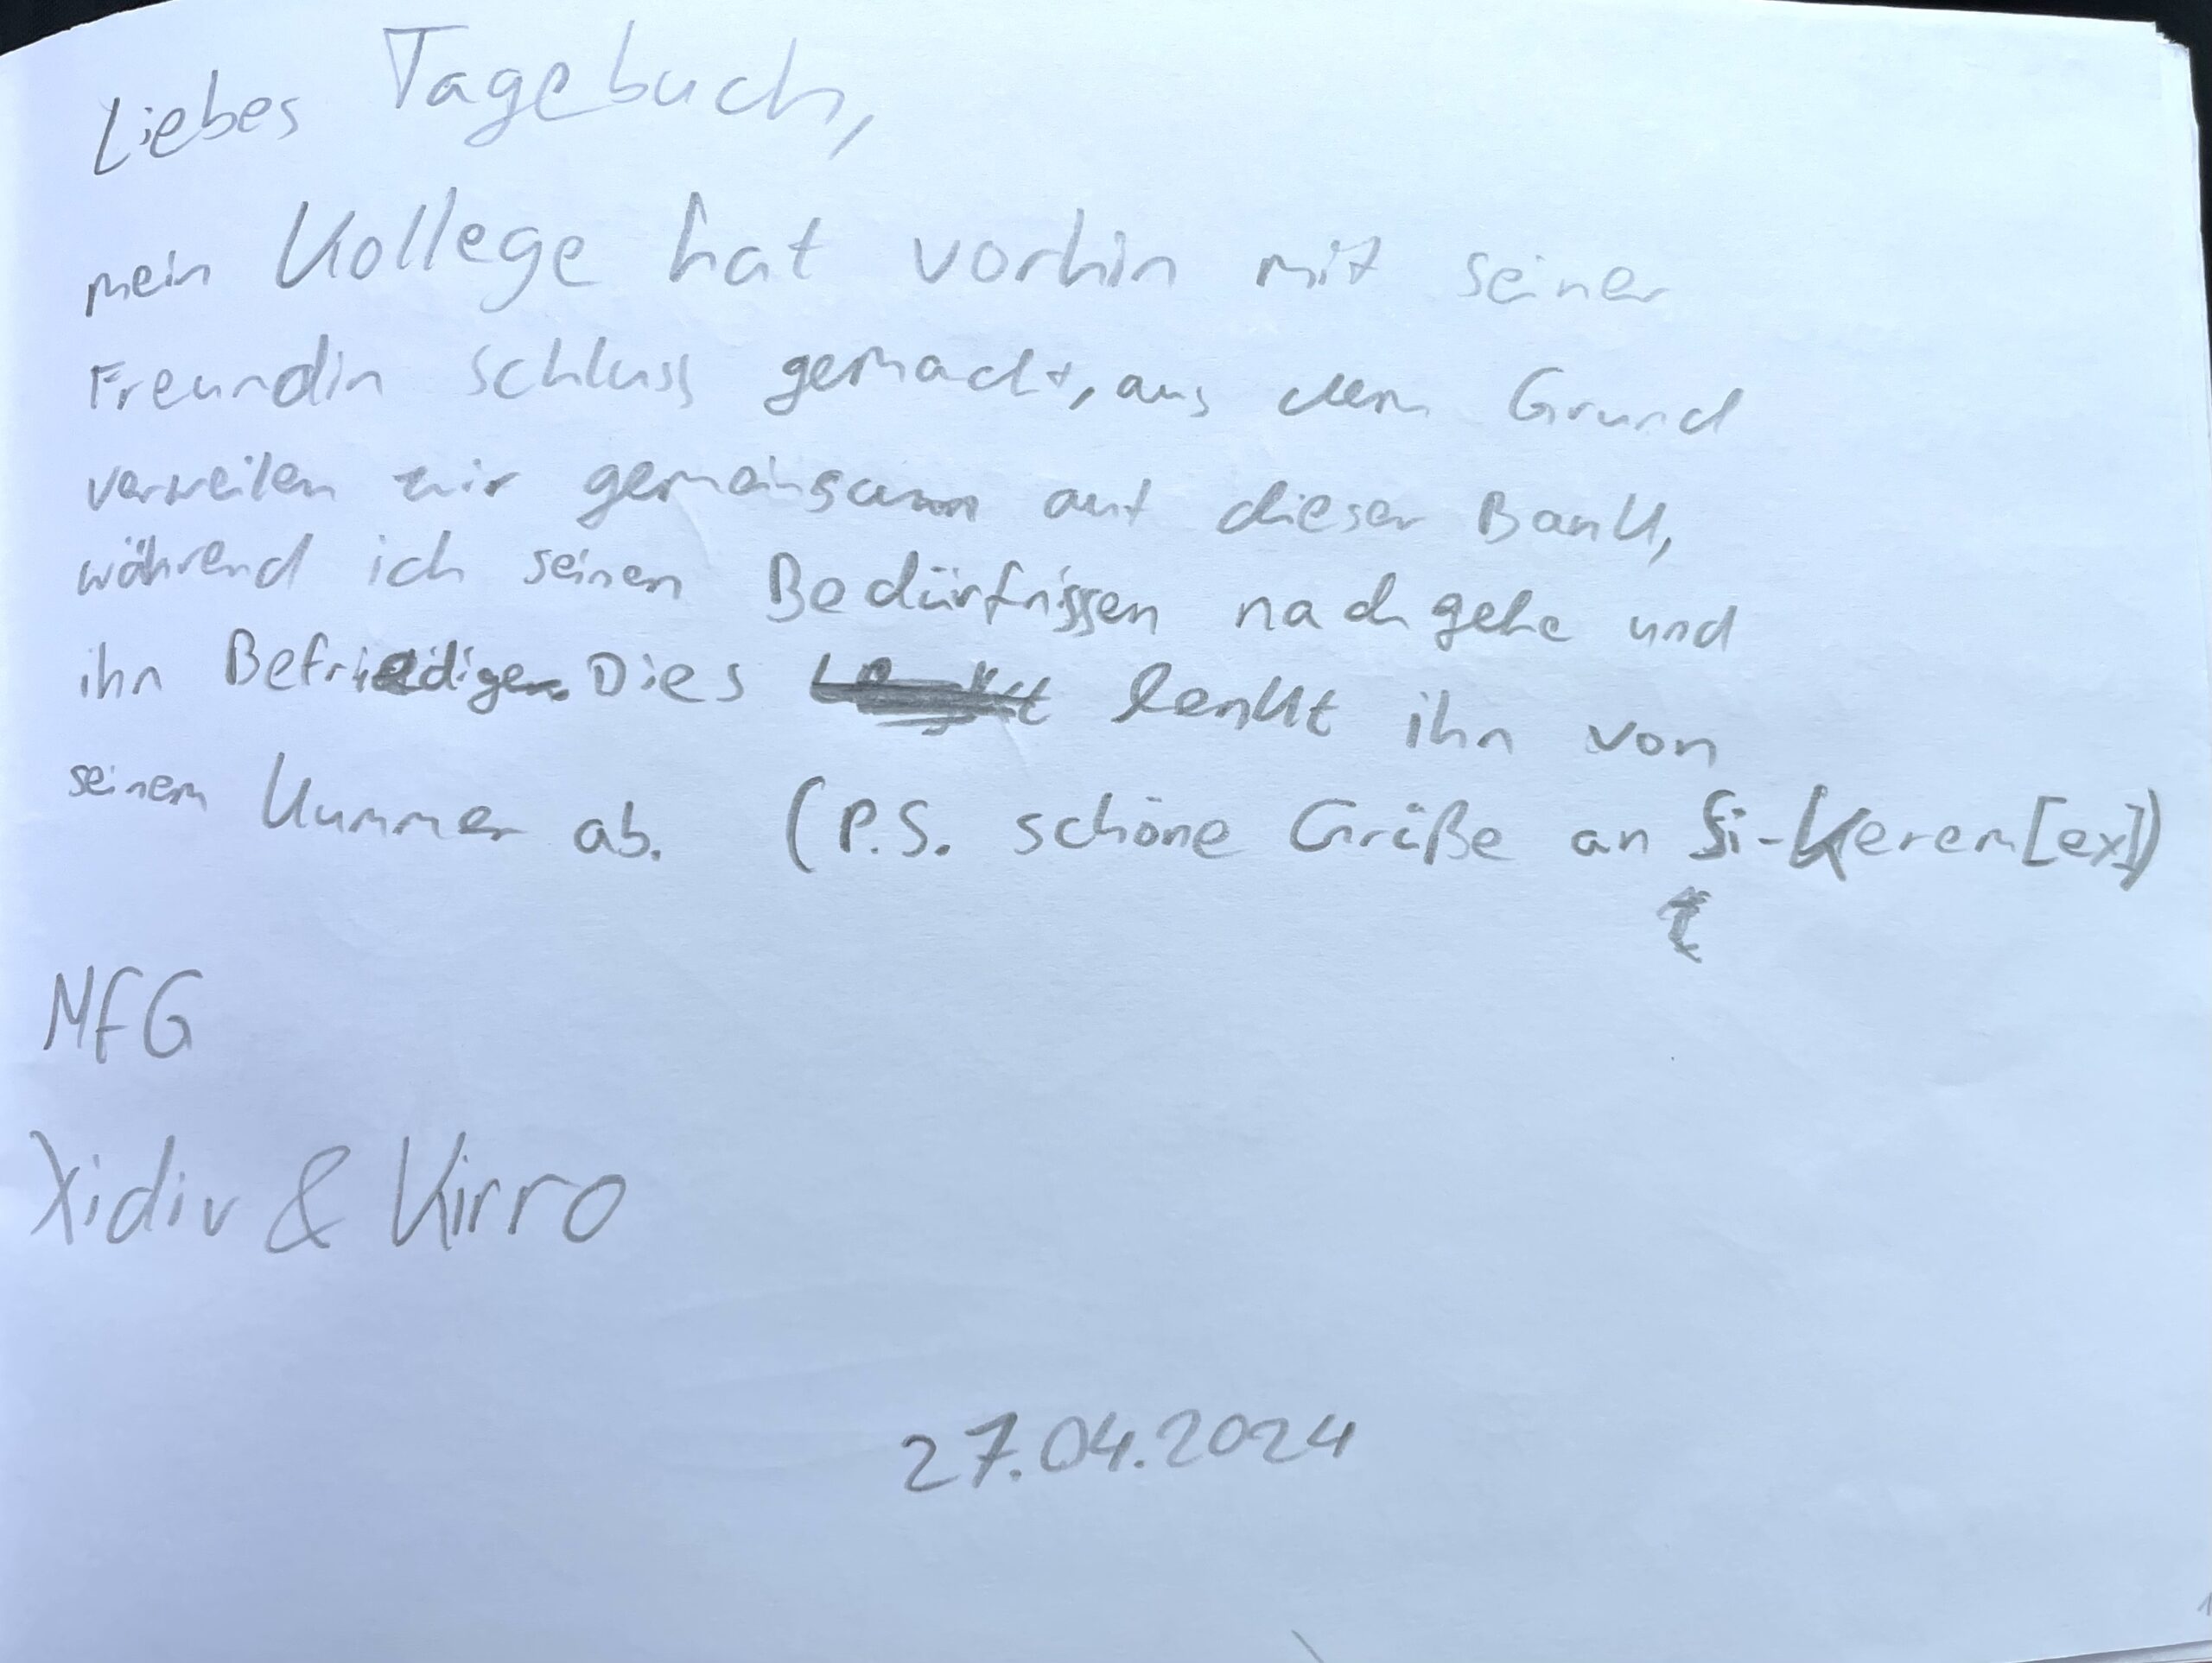 Liebes Tagebuch,
mein Kollege hat vorhin mit seiner
Freundin schluss gemacht, aus dem Grund
verweilen wir gemeinsam auf dieser Bank,
während ich seinen Bedürfnissen nachgehe und
ihn Befriedige. Dies lenkt ihn von
seinem Kummer ab. (P.S. schöne Grüße an Si-Kerem[ex])
MfG
Xidiv & Kirro
27.04.2024